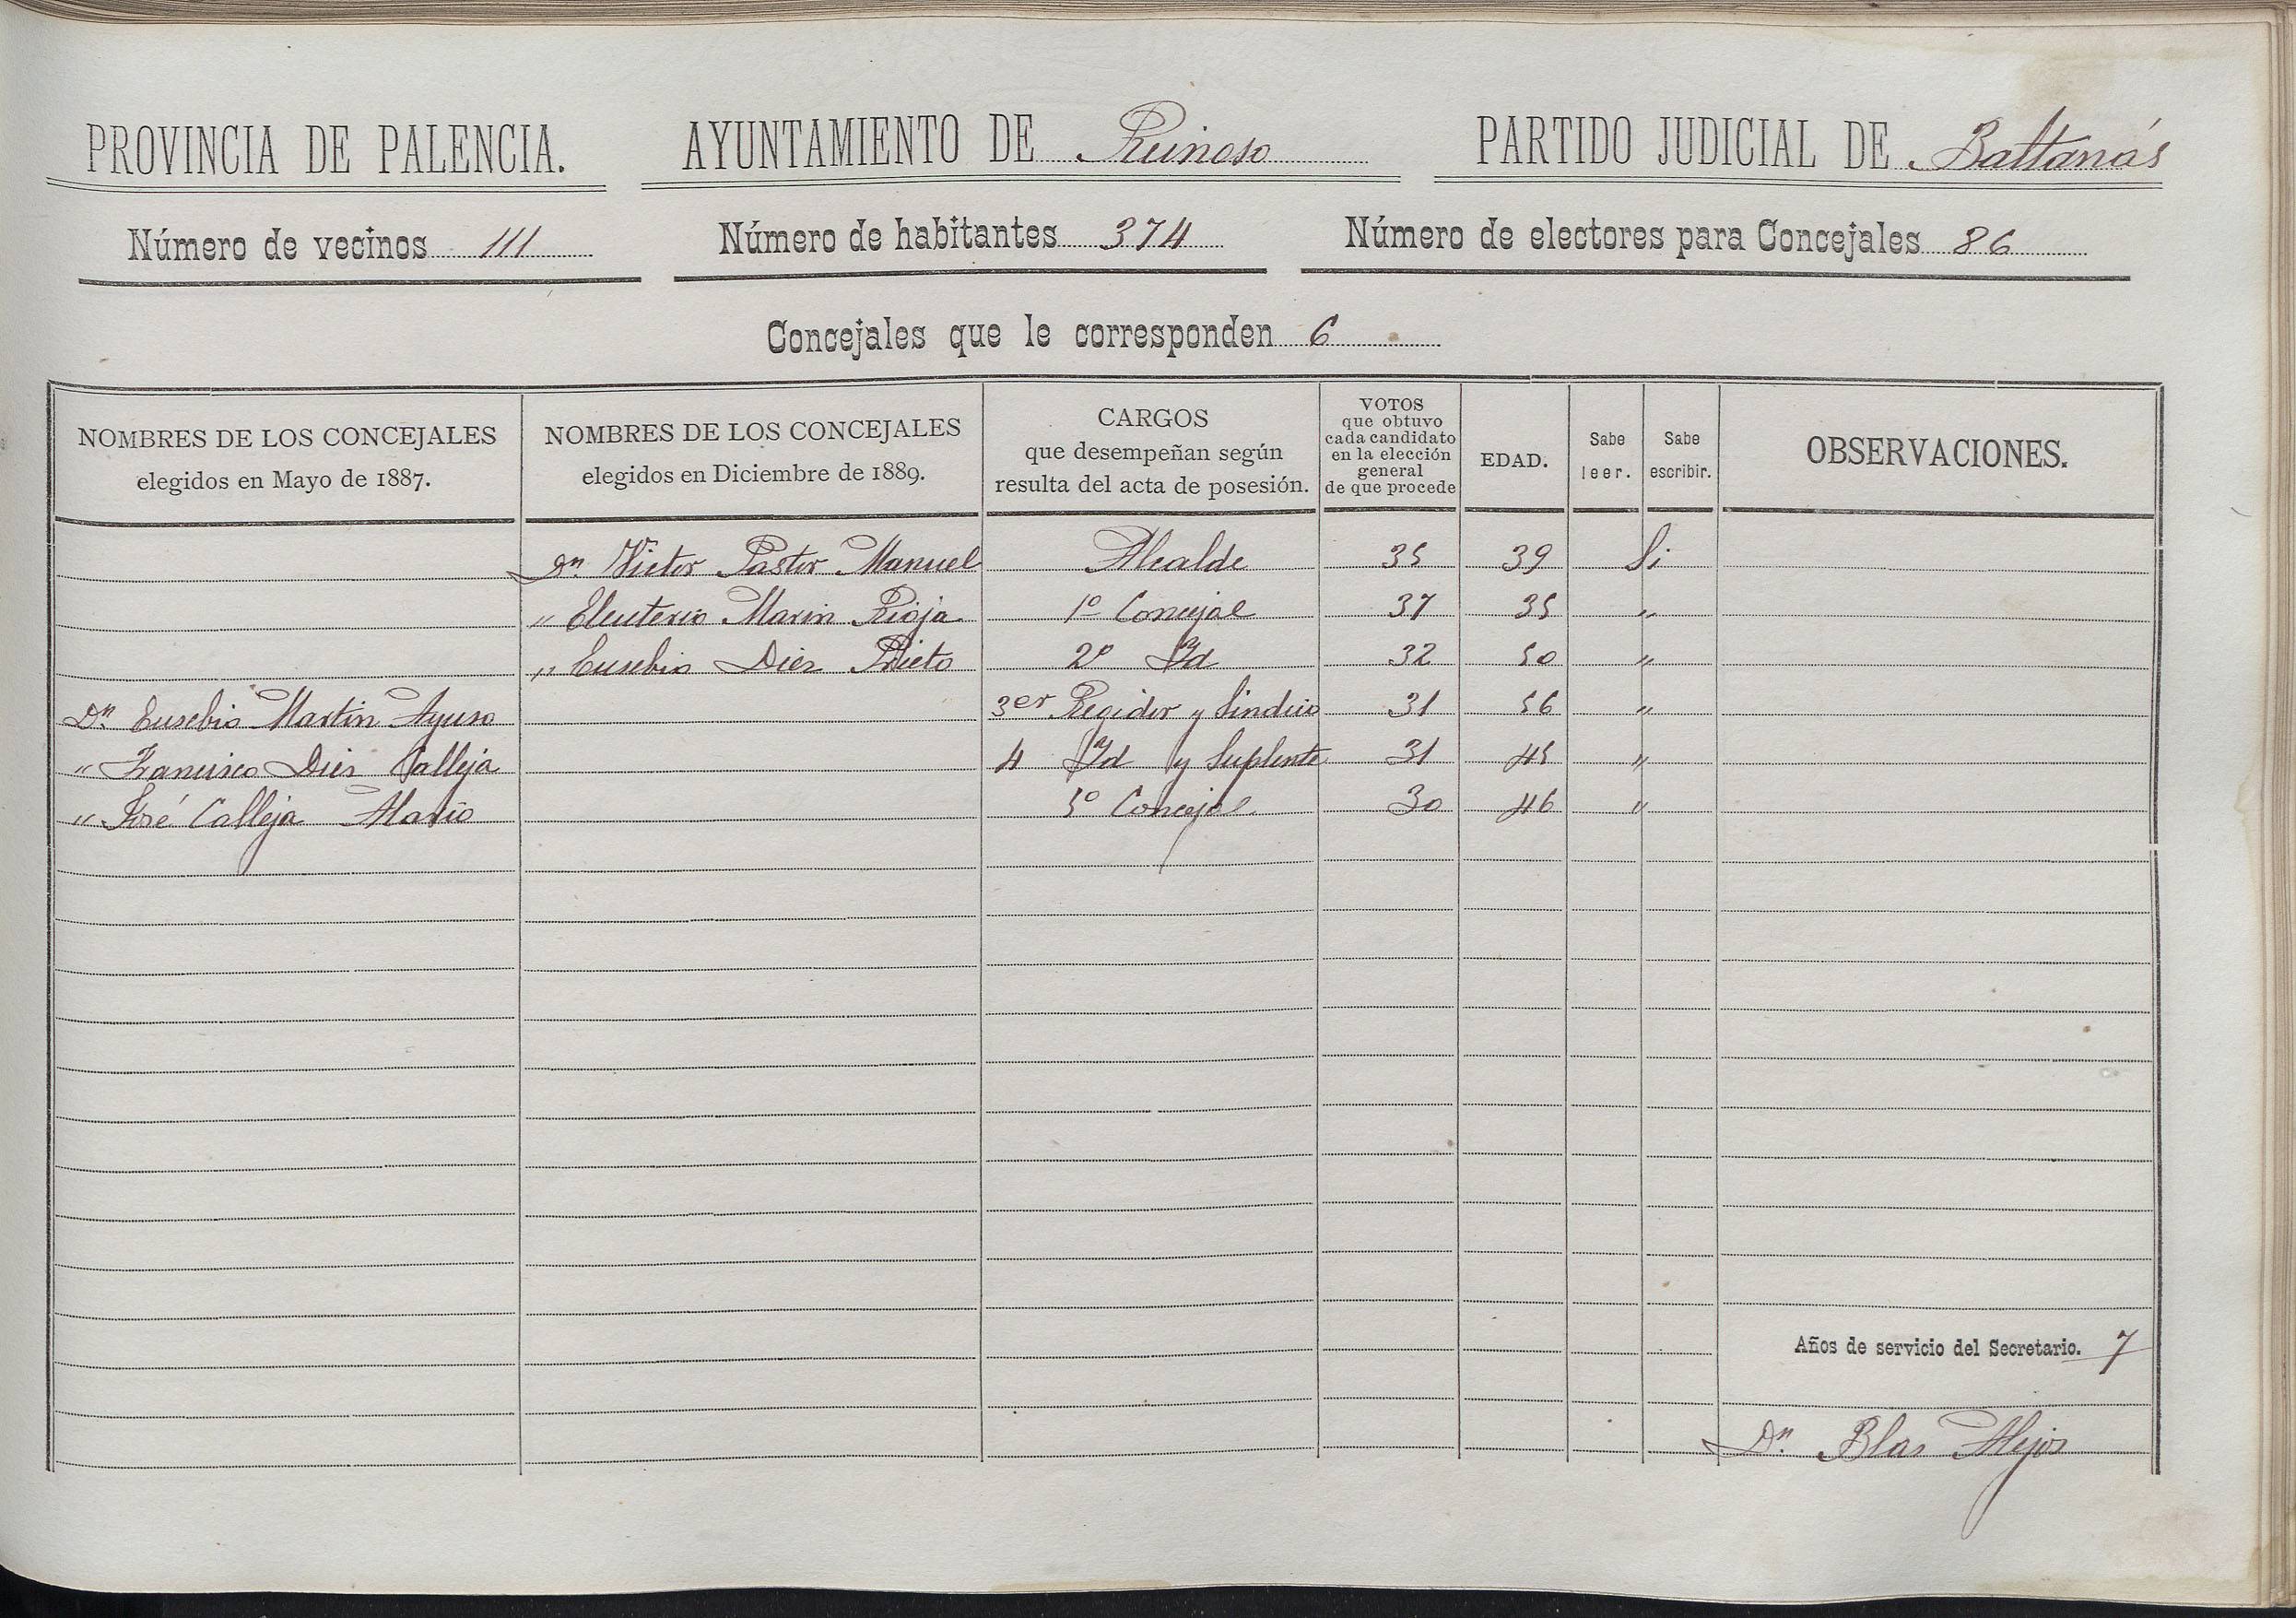 PROVINCIA DE PALENCIA. AYUNTAMIENTO DE Reinoso PARTIDO JUDICIAL DE Baltanás
Número de vecinos 111 Número de habitantes 374 Número de electores para Concejales 86
Concejales que le corresponden 6
NOMBRES DE LOS CONCEJALES
elegidos en Mayo de 1887.
NOMBRES DE LOS CONCEJALES
elegidos en Diciembre de 1889.
CARGOS
que desempeñan según
resulta del acta de posesión.
VOTOS
que obtuvo
cada candidato
en la elección
general
de que procede
EDAD.
Sabe
leer.
Sabe
escribir.
OBSERVACIONES.
Dn. Victor Pastor Manuel Alcalde 35 39 Si
" Eleuterio Marin Rioja 1º Concejal 37 35 "
" Eusebio Diez Prieto 2º Id 32 50 "
Dn. Eusebio Martin Ayuso 3er Regidor y Sindico 31 56 "
" Francisco Dies Calleja 4 Id y Suplente 31 45 "
" José Calleja 5º Concejal 30 46 "
Años de servicio del Secretario. 7
Dn. Blas Alejos